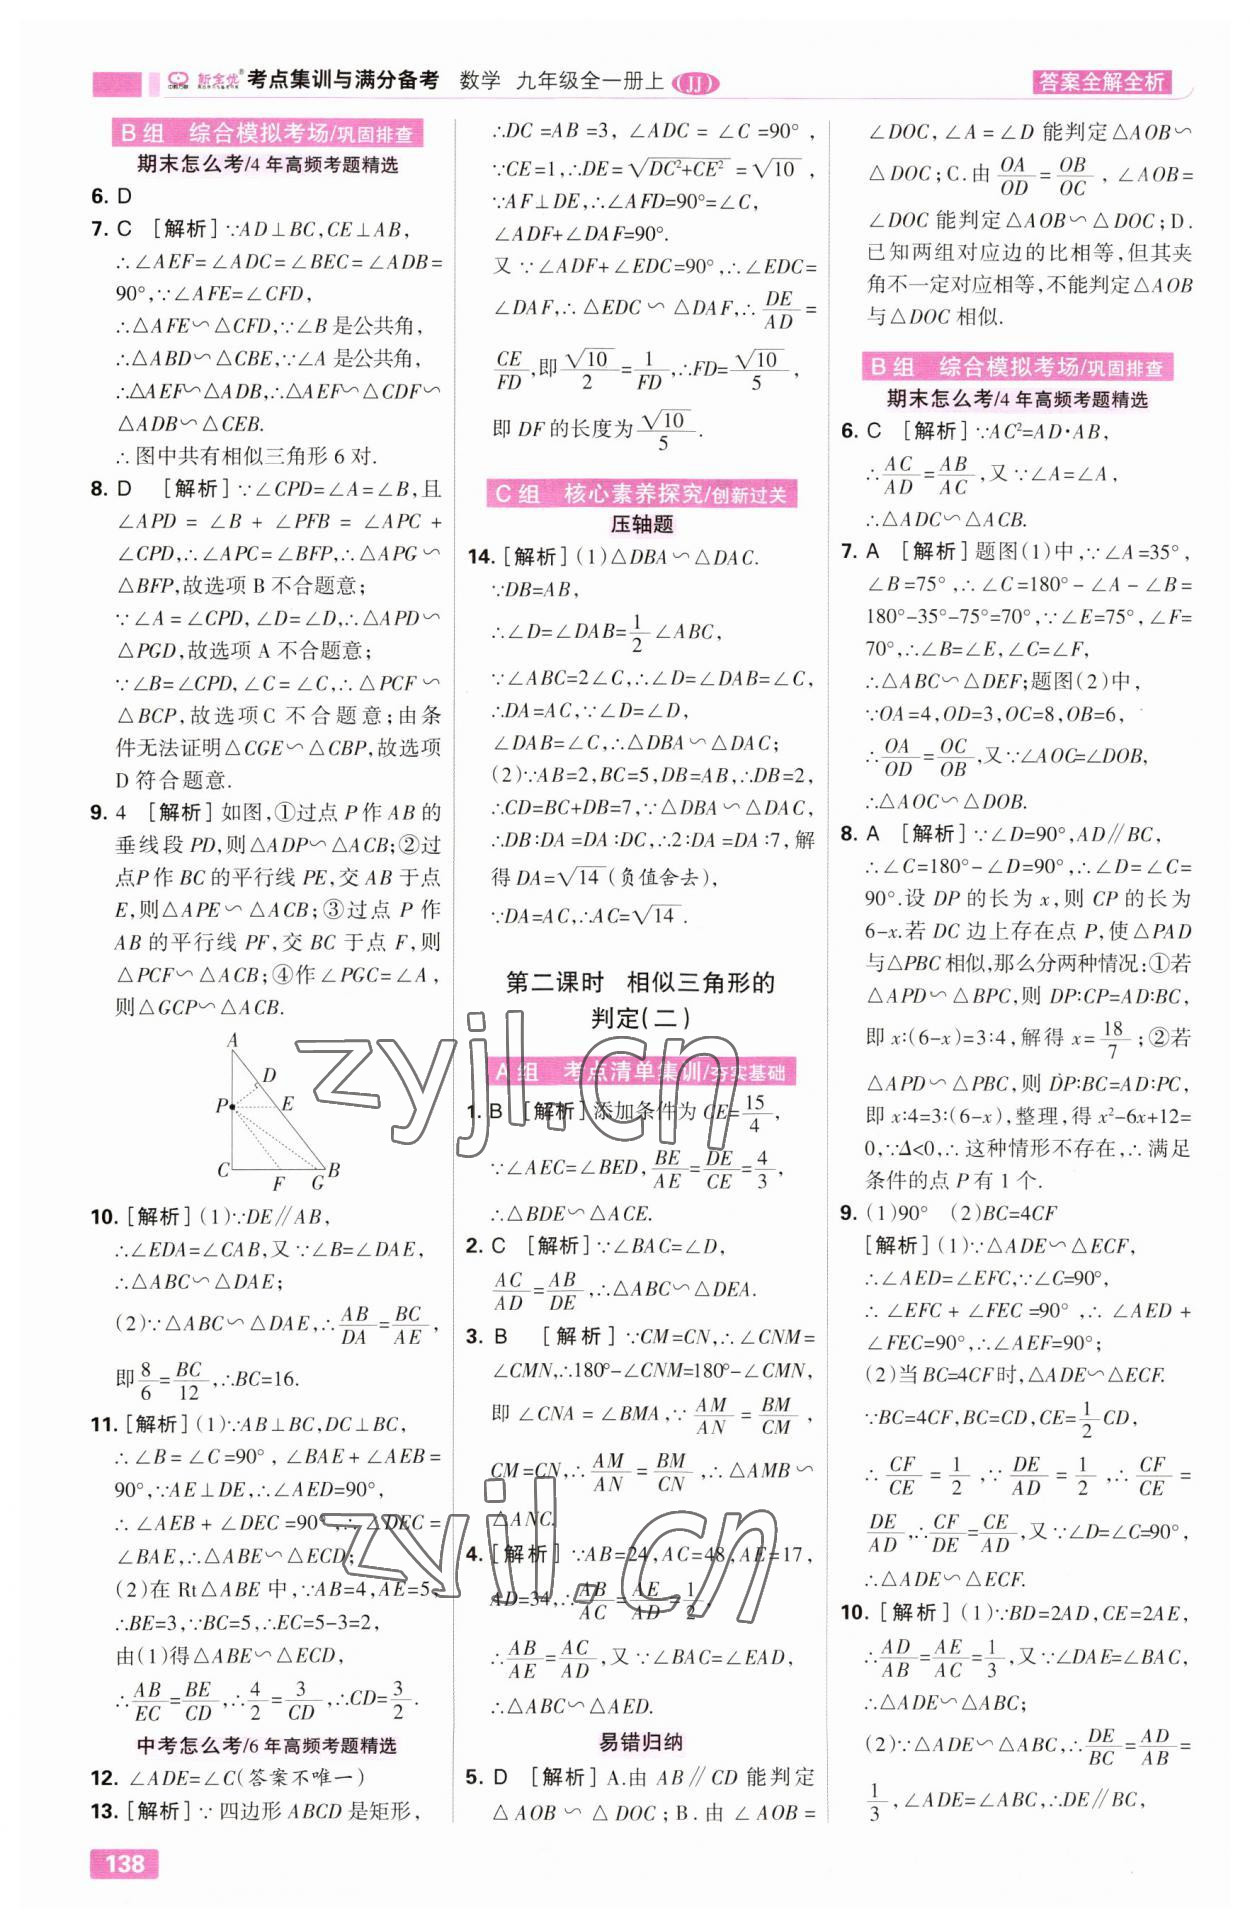 新全优® 考点集训与满分备考 数学 九年级全一册上 (JJ)
答案全解全析
B组 综合模拟考场/巩固排查
期末怎么考/4年高频考题精选
6. D
7. C [解析]∵AD⊥BC,CE⊥AB,
∴∠AEF=∠ADC=∠BEC=∠ADB=
90°,∵∠AFE=∠CFD,
∴△AFE∽△CFD,∵∠B是公共角,
∴△ABD∽△CBE,∵∠A是公共角,
∴△AEF∽△ADB,∴△AEF∽△CDF∽
△ADB∽△CEB.
∴图中共有相似三角形6对.
8. D [解析]∵∠CPD=∠A=∠B,且
∠APD = ∠B + ∠PFB = ∠APC +
∠CPD,∴∠APC=∠BFP,∴△APG∽
△BFP,故选项B不合题意;
∵∠A=∠CPD,∠D=∠D,∴△APD∽
△PGD,故选项A不合题意;
∵∠B=∠CPD,∠C=∠C,∴△PCF∽
△BCP,故选项C不合题意;由条
件无法证明△CGE∽△CBP,故选项
D符合题意.
9. 4 [解析]如图,①过点P作AB的
垂线段PD,则△ADP∽△ACB;②过
点P作BC的平行线PE,交AB于点
E,则△APE∽△ACB;③过点P作
AB的平行线PF,交BC于点F,则
△PCF∽△ACB;④作∠PGC=∠A,
则△GCP∽△ACB.
A
D
P
E
C
F G
B
10. [解析](1)∵DE∥AB,
∴∠EDA=∠CAB,又∵∠B=∠DAE,
∴△ABC∽△DAE;
(2)∵△ABC∽△DAE,∴AB/DA=BC/AE,
即8/6=BC/12,∴BC=16.
11. [解析](1)∵AB⊥BC,DC⊥BC,
∴∠B=∠C=90°,∠BAE+∠AEB=
90°,∵AE⊥DE,∴∠AED=90°,
∴∠AEB+∠DEC=90°,∴∠DEC=
∠BAE,∴△ABE∽△ECD;
(2)在Rt△ABE中,∵AB=4,AE=5,
∴BE=3,∵BC=5,∴EC=5-3=2,
由(1)得△ABE∽△ECD,
∴AB/EC=BE/CD,∴4/2=3/CD,∴CD=3/2.
中考怎么考/6年高频考题精选
12. ∠ADE=∠C(答案不唯一)
13. [解析]∵四边形ABCD是矩形,
138
∴DC=AB=3,∠ADC=∠C=90°,
∵CE=1,∴DE=√(DC²+CE²)=√10,
∵AF⊥DE,∴∠AFD=90°=∠C,
∠ADF+∠DAF=90°.
又∵∠ADF+∠EDC=90°,∴∠EDC=
∠DAF,∴△EDC∽△DAF,∴DE/AD=
CE/FD,即√10/2=1/FD,∴FD=√10/5,
即DF的长度为√10/5.
C组 核心素养探究/创新过关
压轴题
14. [解析](1)△DBA∽△DAC.
∵DB=AB,
∴∠D=∠DAB=1/2∠ABC,
∵∠ABC=2∠C,∴∠D=∠DAB=∠C,
∴DA=AC,∵∠D=∠D,
∠DAB=∠C,∴△DBA∽△DAC;
(2)∵AB=2,BC=5,DB=AB,∴DB=2,
∴CD=BC+DB=7,∵△DBA∽△DAC,
∴DB∶DA=DA∶DC,∴2∶DA=DA∶7,解
得DA=√14(负值舍去),
∵DA=AC,∴AC=√14.
第二课时 相似三角形的
判定(二)
A组 考点清单集训/夯实基础
1. B [解析]添加条件为CE=15/4,
∵∠AEC=∠BED,BE/AE=DE/CE=4/3,
∴△BDE∽△ACE.
2. C [解析]∵∠BAC=∠D,
AC/AD=AB/DE,∴△ABC∽△DEA.
3. B [解析]∵CM=CN,∴∠CNM=
∠CMN,∴180°-∠CNM=180°-∠CMN,
即∠CNA=∠BMA,∵AM/AN=BM/CM,
CM=CN,∴AM/AN=BM/CN,∴△AMB∽
△ANC.
4. [解析]∵AB=24,AC=48,AE=17,
AD=34,∴AB/AC=AE/AD=1/2,
∴AB/AE=AC/AD,又∵∠BAC=∠EAD,
∴△ABC∽△AED.
易错归纳
5. D [解析]A.由AB∥CD能判定
△AOB∽△DOC;B.由∠AOB=
∠DOC,∠A=∠D能判定△AOB∽
△DOC;C.由OA/OD=OB/OC,∠AOB=
∠DOC能判定△AOB∽△DOC;D.
已知两组对应边的比相等,但其夹
角不一定对应相等,不能判定△AOB
与△DOC相似.
B组 综合模拟考场/巩固排查
期末怎么考/4年高频考题精选
6. C [解析]∵AC²=AD·AB,
∴AC/AD=AB/AC,又∵∠A=∠A,
∴△ADC∽△ACB.
7. A [解析]题图(1)中,∵∠A=35°,
∠B=75°,∴∠C=180°-∠A-∠B=
180°-35°-75°=70°,∵∠E=75°,∠F=
70°,∴∠B=∠E,∠C=∠F,
∴△ABC∽△DEF;题图(2)中,
∵OA=4,OD=3,OC=8,OB=6,
∴OA/OD=OC/OB,又∵∠AOC=∠DOB,
∴△AOC∽△DOB.
8. A [解析]∵∠D=90°,AD∥BC,
∴∠C=180°-∠D=90°,∴∠D=∠C=
90°.设DP的长为x,则CP的长为
6-x.若DC边上存在点P,使△PAD
与△PBC相似,那么分两种情况:①若
△APD∽△BPC,则DP∶CP=AD∶BC,
即x∶(6-x)=3∶4,解得x=18/7;②若
△APD∽△PBC,则DP∶BC=AD∶PC,
即x∶4=3∶(6-x),整理,得x²-6x+12=
0,∵Δ<0,∴这种情形不存在,∴满足
条件的点P有1个.
9. (1)90° (2)BC=4CF
[解析](1)∵△ADE∽△ECF,
∴∠AED=∠EFC,∵∠C=90°,
∴∠EFC+∠FEC=90°,∴∠AED+
∠FEC=90°,∴∠AEF=90°;
(2)当BC=4CF时,△ADE∽△ECF.
∵BC=4CF,BC=CD,CE=1/2CD,
∴CF/CE=1/2,∵DE/AD=1/2,∴CF/CE=
DE/AD,∴CF/DE=CE/AD,又∵∠D=∠C=90°,
∴△ADE∽△ECF.
10. [解析](1)∵BD=2AD,CE=2AE,
∴AD/AB=AE/AC=1/3,又∵∠DAE=∠BAC,
∴△ADE∽△ABC;
(2)∵△ADE∽△ABC,∴DE/BC=AD/AB=
1/3,∠ADE=∠ABC,∴DE∥BC,
zyjl.cn
zyjl.cn